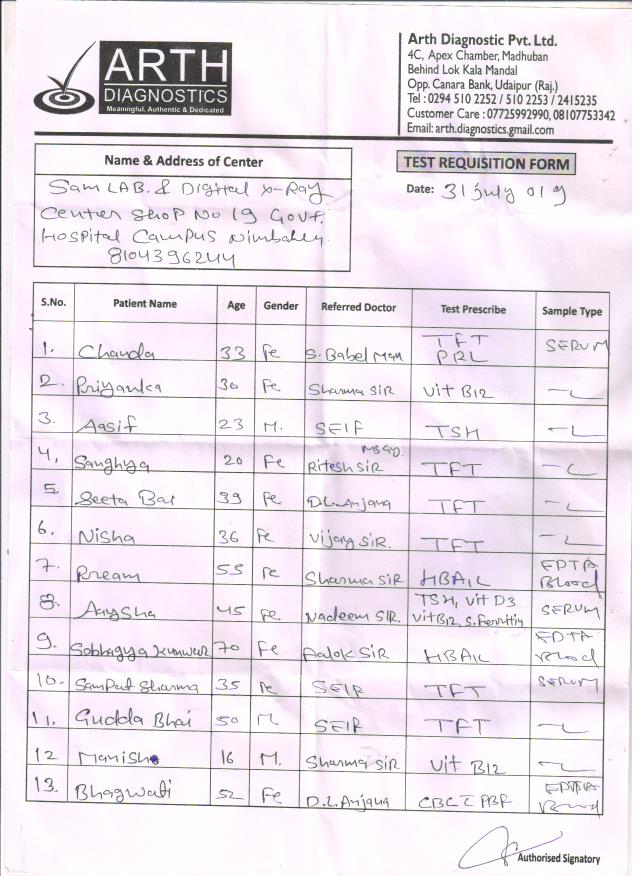 ARTH
DIAGNOSTICS
Meaningful, Authentic & Dedicated
Arth Diagnostic Pvt. Ltd.
4C, Apex Chamber, Madhuban
Behind Lok Kala Mandal
Opp. Canara Bank, Udaipur (Raj.)
Tel : 0294 510 2252 / 510 2253 / 2415235
Customer Care : 07725992990, 08107753342
Email: arth.diagnostics.gmail.com
Name & Address of Center
Sam LAB. & Digital X-Ray
Center Shop No 19 Govt.
Hospital Campus
8104396244
TEST REQUISITION FORM
Date: 31 july 019
S.No. Patient Name Age Gender Referred Doctor Test Prescribe Sample Type
1. Chanda 33 Fe S. Babel Mam TFT PRL SERUM
2. Priyanka 30 Fe. Sharma SIR Vit B12
3. Aasif 23 M. SEIF TSH
4. Sanghya 20 Fe Ritesh SIR TFT
5 Seeta Bai 39 Fe D.L. Anjana TFT
6. Nisha 36 Fe Vijay SIR. TFT
7. 55 Fe Sharma SIR HBA1C EDTA Blood
8. Aaysha 45 Fe. Nadeem SIR. TSH, Vit D3 Vit B12, SERUM
9. Sobhagya Kunwar 70 Fe Aalok SIR HBA1C EDTA Blood
10. Sampat Sharma 35 Fe SEIF TFT SERUM
11. Gudda Bhai 50 M. SEIF TFT
12 Manisha 16 M. Sharma SIR Vit B12
13. Bhagwati 52 Fe D.L. Anjana CBC PBF EDTA Blood
Authorised Signatory